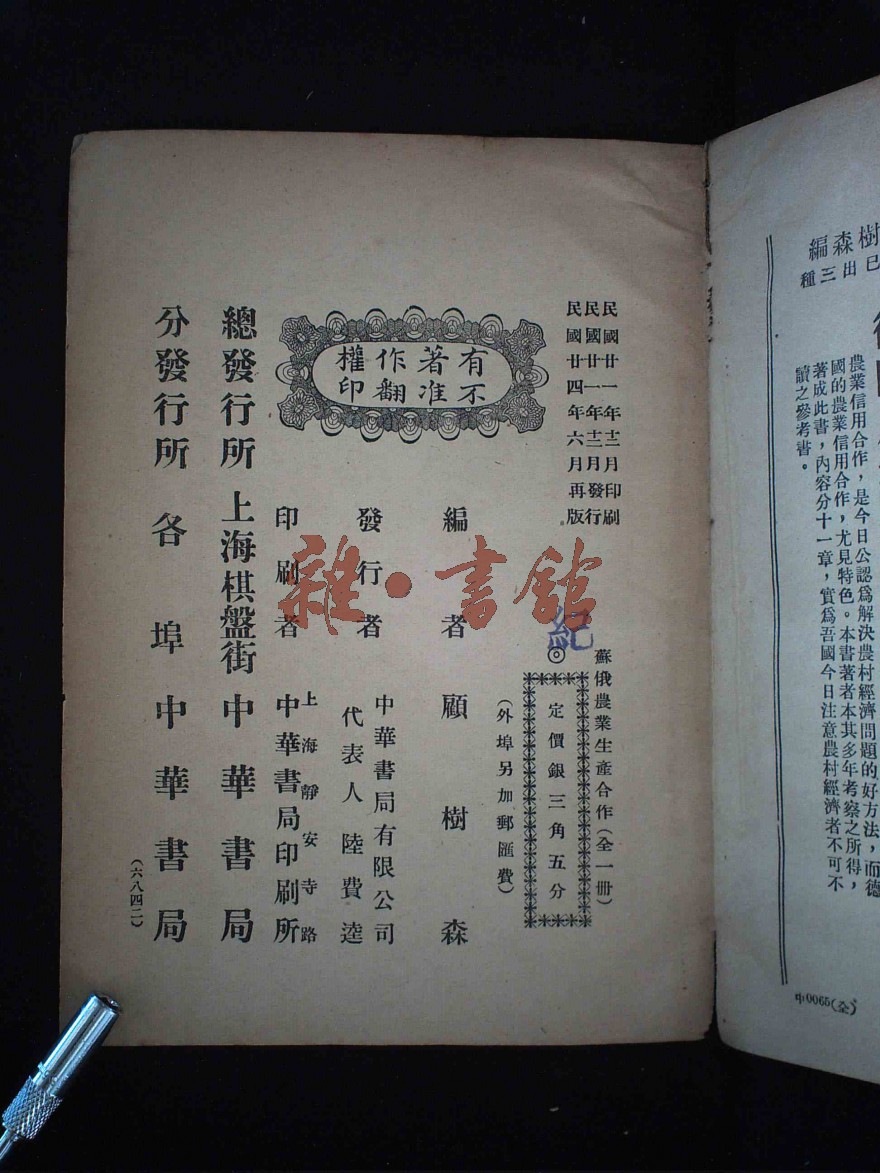 民國廿一年十二月印刷
民國廿一年十二月發行
民國廿四年六月再版
有著作權
不准翻印
蘇俄農業生產合作(全一册)
◎
定價銀三角五分
(外埠另加郵匯費)
編者 顧樹森
發行者 中華書局有限公司
代表人 陸費逵
印刷者 上海靜安寺路
中華書局印刷所
總發行所 上海棋盤街 中華書局
分發行所 各埠 中華書局
(六八四二)
雜·書館
紀
樹森編
已出三種
農業信用合作,是今日公認爲解決農村經濟問題的好方法,而德
國的農業信用合作,尤見特色。本書著者本其多年考察之所得,
著成此書,內容分十一章,實爲吾國今日注意農村經濟者不可不
讀之參考書。
中0065(全)